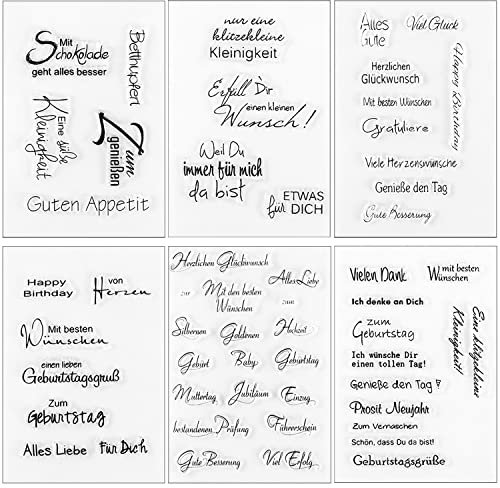 Mit
Schokolade
geht alles besser
Betthupferl
Eine süße
Kleinigkeit
Zum
genießen
Guten Appetit
nur eine
klitzekleine
Kleinigkeit
Erfüll Dir
einen kleinen
Wunsch!
Weil Du
immer für mich
da bist
ETWAS
für DICH
Alles
Gute
Viel Glück
Happy Birthday
Herzlichen
Glückwunsch
Mit besten Wünschen
Gratuliere
Viele Herzenswünsche
Genieße den Tag
Gute Besserung
Happy
Birthday
von
Herzen
Mit besten
Wünschen
einen lieben
Geburtstagsgruß
Zum
Geburtstag
Alles Liebe
Für Dich
Herzlichen Glückwunsch
zur
Mit den besten
Wünschen
Alles Liebe
zum
Silbernen
Goldenen
Hochzeit
Geburt
Baby
Geburtstag
Muttertag
Jubiläum
Einzug
bestandenen
Prüfung
Führerschein
Gute Besserung
Viel Erfolg
Vielen Dank
mit besten
Wünschen
Ich denke an Dich
zum
Geburtstag
Eine klitzekleine
Kleinigkeit!
Ich wünsche Dir
einen tollen Tag!
Genieße den Tag!
Prosit Neujahr
Zum Vernaschen
Schön, dass Du da bist!
Geburtstagsgrüße